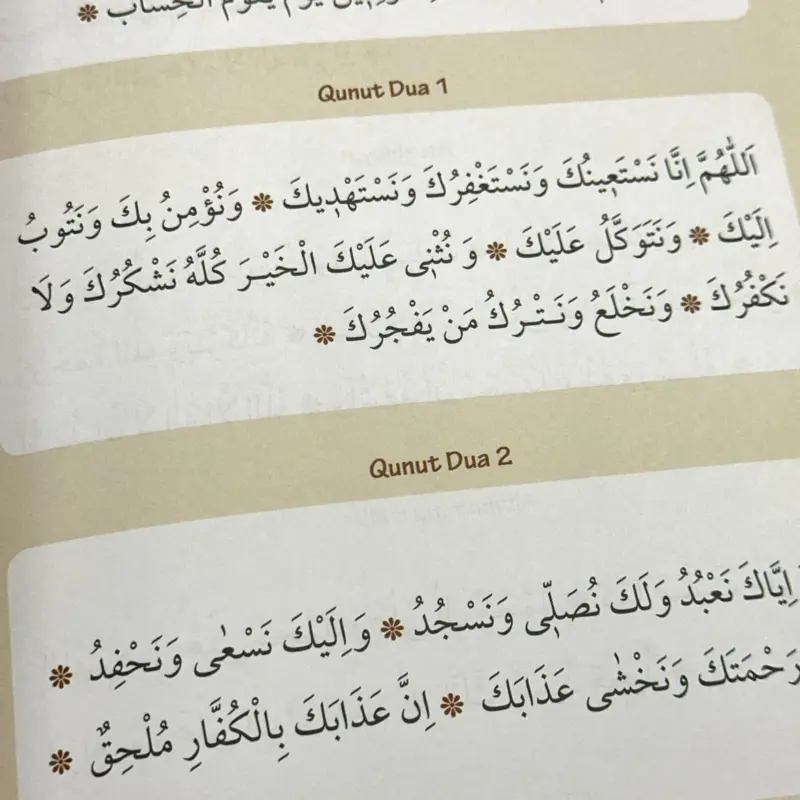 يَوْمَ يَقُومُ الْحِسَابُ ❋
Qunut Dua 1
اَللّٰهُمَّ اِنَّا نَسْتَعِينُكَ وَنَسْتَغْفِرُكَ وَنَسْتَهْدِيكَ ❋ وَنُؤْمِنُ بِكَ وَنَتُوبُ
اِلَيْكَ ❋ وَنَتَوَكَّلُ عَلَيْكَ ❋ وَ نُثْنِى عَلَيْكَ الْخَيْرَ كُلَّهُ نَشْكُرُكَ وَلَا
نَكْفُرُكَ ❋ وَنَخْلَعُ وَنَتْرُكُ مَنْ يَفْجُرُكَ ❋
Qunut Dua 2
اِيَّاكَ نَعْبُدُ وَلَكَ نُصَلِّى وَنَسْجُدُ ❋ وَاِلَيْكَ نَسْعٰى وَنَحْفِدُ ❋
رَحْمَتَكَ وَنَخْشٰى عَذَابَكَ ❋ اِنَّ عَذَابَكَ بِالْكُفَّارِ مُلْحِقٌ ❋